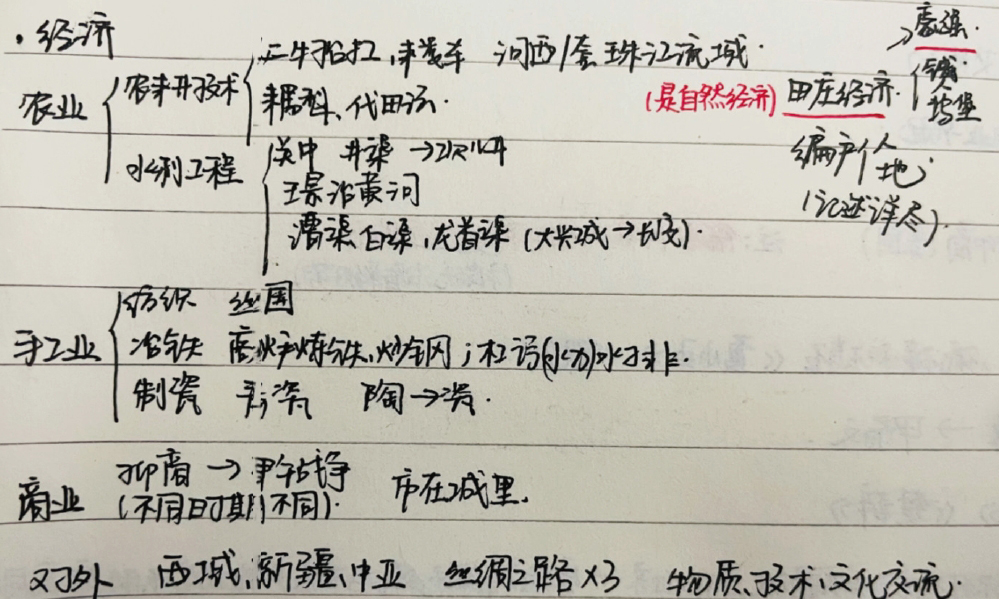 ·经济
农业 农来井技术 二牛抬杠,耒耧车 河西/套 珠江流域.
耦犁、代田法.
(是自然经济) 田庄经济. →豪强.
坞堡
编户 人 地
(记述详尽).
水利工程 汉中 井渠 →
王景治黄河
漕渠 白渠,龙首渠 (大兴城→长安).
手工业 纺织 丝国
冶铁 高炉炼铁,炒钢;杜诗(水力)水排.
制瓷 青瓷 陶→瓷.
商业 抑商 → 战争 市在城里.
(不同时期不同).
对外 西域,新疆,中亚 丝绸之路×3 物质、技术、文化交流.